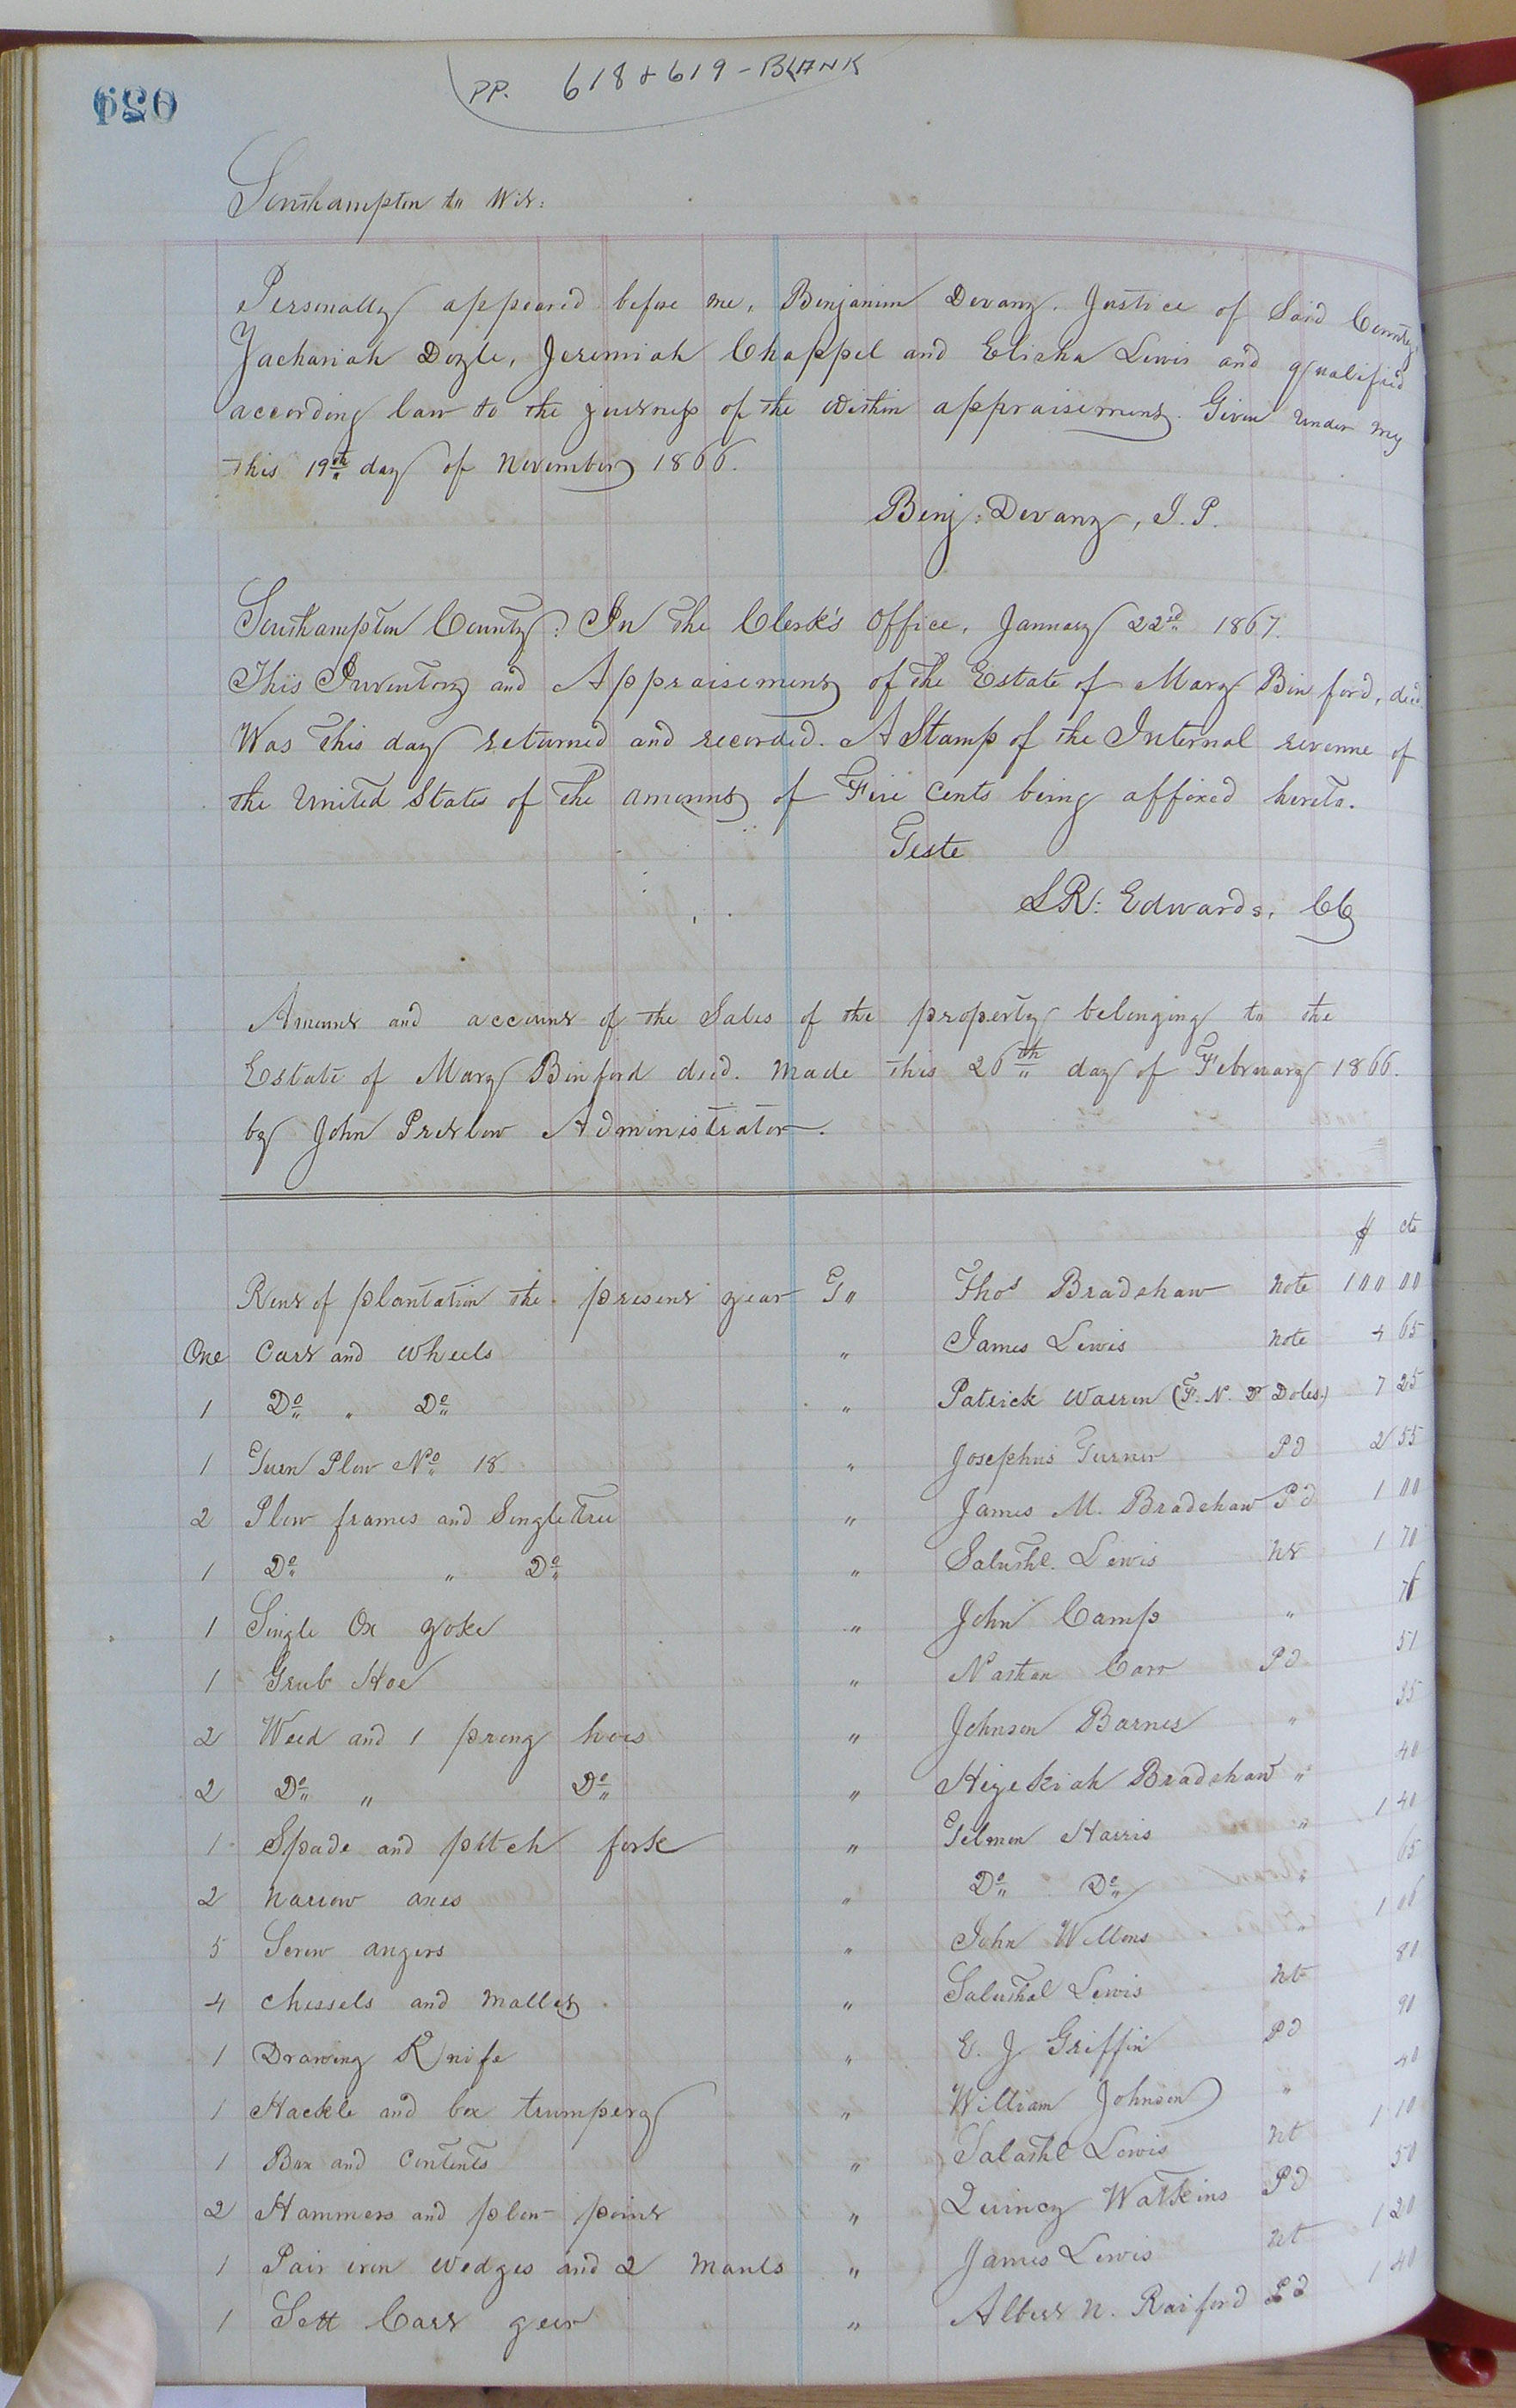 620
PP. 618 & 619 - BLANK
Southampton to Wit:
Personally appeared before me, Benjamin Devany. Justice of Said County
Zachariah Doyle, Jeremiah Chappel and Elisha Lewis and qualified
according law to the justness of the within appraisement. Given under my
this 19th day of November 1866.
Benj: Devany, J. P.
Southampton County: In the Clerk's Office, January 22nd 1867.
This Inventory and Appraisement of the Estate of Mary Binford, decd.
Was this day returned and recorded. A Stamp of the Internal revenue of
the United States of the amount of Five Cents being affixed hereto.
Teste
L R: Edwards, CC
Amount and account of the Sales of the property belonging to the
Estate of Mary Binford decd. Made this 26th day of February 1866.
by John Pretlow Administrator.
$ cts
Rent of plantation the present year To Thos Bradshaw Note 100 00
One Cart and Wheels " James Lewis Note 4 65
1 Do " Do " Patrick Warren (F. N. D Doles.) 7 25
1 Turn Plow No 18 " Josephus Turner Pd 2 55
2 Plow frames and Singletree " James M. Bradshaw Pd 1 00
1 Do " Do " Salathl. Lewis Nt 1 70
1 Single Ox yoke " John Camp "
1 Grub Hoe " Nathan Carr Pd 51
2 Weed and 1 prong hoes " Johnson Barnes " 35
2 Do " Do " Hezekiah Bradshaw " 40
1 Spade and pitch fork " Tilmon Harris " 1 40
2 Narrow axes " Do Do " 65
5 Screw augers " John Willons " 1 06
4 Chessels and Mallet " Salathal Lewis Nt 80
1 Drawing Knife " E. J Griffin Pd 90
1 Hackle and box trumpery " William Johnson " 40
1 Box and Contents " Salathl Lewis Nt 1 10
2 Hammers and plow point " Quincy Watkins Pd 50
1 Pair iron Wedges and 2 Mauls " James Lewis Nt 1 20
1 Sett Cart geer " Albert N. Raiford Pd 1 40